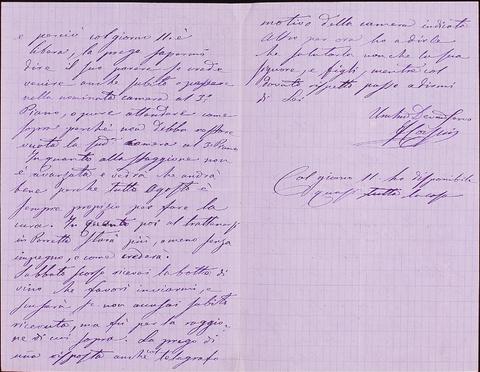 e perciò col giorno 11. è
libera, la prego sapermi
dire il suo parere se crede
venire anche subito e passare
nella nominata camera al 3.
Piano, o pure attendere come
sopra perchè non debba restare
vuota la sudª camera al 3. Piano
In quanto alla staggione non
è avanzata e vedrà che andrà
bene perche tutto Agosto è
sempre propizio per fare la
cura. In quanto poi al trattenersi
in Porretta starà più, o meno senza
impegno, e come crederà.
Sabbato scorso ricevei la botta di
vino che favorì inviarmi, e
scuserà se non accusai subito
ricevuta, ma fù per la raggio-
ne di cui sopra. La prego di
una risposta anche col telegrafo
motivo della camera indicata
Altro per ora ho a dirle
che salutarla nonche la sua
Signora, e figli, mentre col
dovuto rispetto passo a dirmi
di Lei
Col giorno 11 ho disponibile
quasi tutta la casa